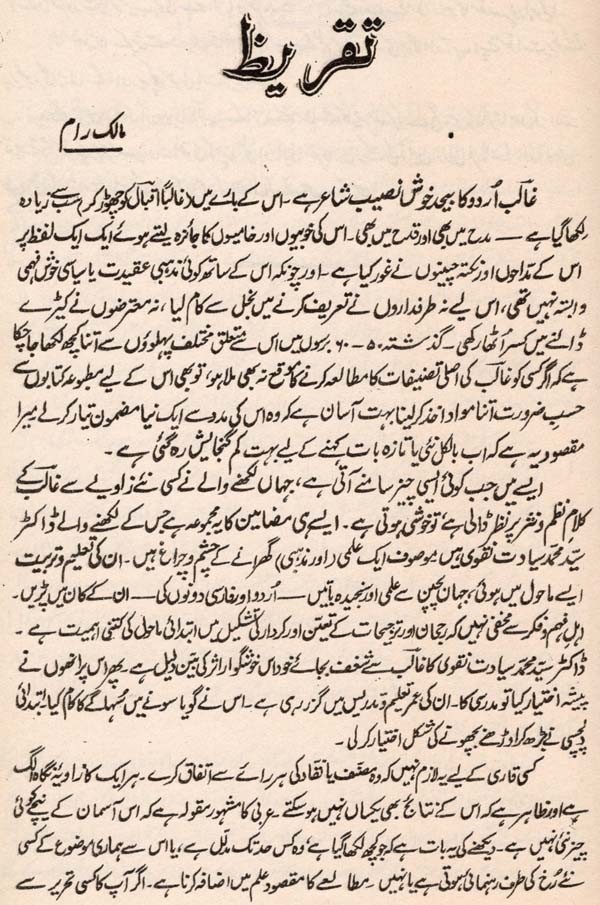 تقریظ
مالک رام
غالب اُردو کا بیحد خوش نصیب شاعر ہے۔ اس کے بارے میں (غالباً اقبال کو چھوڑ کر) سب سے زیادہ
لکھا گیا ہے — مدح میں بھی اور قدح میں بھی۔ اس کی خوبیوں اور خامیوں کا جائزہ لیتے ہوئے ایک ایک لفظ پر
اس کے مداحوں اور نکتہ چینوں نے غور کیا ہے۔ اور چونکہ اس کے ساتھ کوئی مذہبی عقیدت یا سیاسی خوش فہمی
وابستہ نہیں تھی، اس لیے نہ طرفداروں نے تعریف کرنے میں بخل سے کام لیا، نہ معترضوں نے کیڑے
ڈالنے میں کسر اُٹھا رکھی۔ گذشتہ ۵۰-۶۰ برسوں میں اس سے متعلق مختلف پہلوؤں سے اتنا کچھ لکھا جا چکا
ہے کہ اگر کسی کو غالب کی اصلی تصنیفات کا مطالعہ کرنے کا موقع نہ بھی ملا ہو، تو بھی اس کے لیے مطبوعہ کتابوں سے
حسبِ ضرورت اتنا مواد اخذ کر لینا بہت آسان ہے کہ وہ اس کی مدد سے ایک نیا مضمون تیار کر لے میرا
مقصود یہ ہے کہ اب بالکل نئی یا تازہ بات کہنے کے لیے بہت کم گنجایش رہ گئی ہے۔
ایسے میں جب کوئی ایسی چیز سامنے آتی ہے، جہاں لکھنے والے نے کسی نئے زاویے سے غالب کے
کلامِ نظم و نثر پر نظر ڈالی ہے تو خوشی ہوتی ہے۔ ایسے ہی مضامین کا یہ مجموعہ ہے جس کے لکھنے والے ڈاکٹر
سیّد محمد سیادت نقوی ہیں موصوف ایک علمی (اور مذہبی) گھرانے کے چشم و چراغ ہیں۔ ان کی تعلیم و تربیت
ایسے ماحول میں ہوئی، جہاں بچپن سے علمی اور سنجیدہ باتیں — اُردو اور فارسی دونوں کی — ان کے کان میں پڑیں۔
اہلِ فہم و فکر سے مخفی نہیں کہ رجحان اور ترجیحات کے تعین اور کردار کی تشکیل میں ابتدائی ماحول کی کتنی اہمیت ہے۔
ڈاکٹر سیّد محمد سیادت نقوی کا غالب سے شغف بجائے خود اس خوشگوار اثر کی بیّن دلیل ہے۔ پھر اس پر انھوں نے
پیشہ اختیار کیا تو مدرسی کا۔ ان کی عمر تعلیم و تدریس میں گزر رہی ہے۔ اس نے گویا سونے میں سُہاگے کا کام کیا۔ ابتدائی
دلچسپی نے بڑھ کر اوڑھنے بچھونے کی شکل اختیار کر لی۔
کسی قاری کے لیے یہ لازم نہیں کہ وہ مصنف یا نقاد کی ہر رائے سے اتفاق کرے۔ ہر ایک کا زاویۂ نگاہ الگ
ہے اور ظاہر ہے کہ اس کے نتائج بھی یکساں نہیں ہو سکتے۔ عربی کا مشہور مقولہ ہے کہ اس آسمان کے نیچے کوئی
چیز نئی نہیں ہے۔ دیکھنے کی یہ بات ہے کہ جو کچھ لکھا گیا ہے، وہ کس حد تک مدلّل ہے، یا اس سے ہماری موضوع کے کسی
نئے رُخ کی طرف رہنمائی ہوتی ہے یا نہیں۔ مطالعے کا مقصود علم میں اضافہ کرنا ہے۔ اگر آپ کا کسی تحریر سے